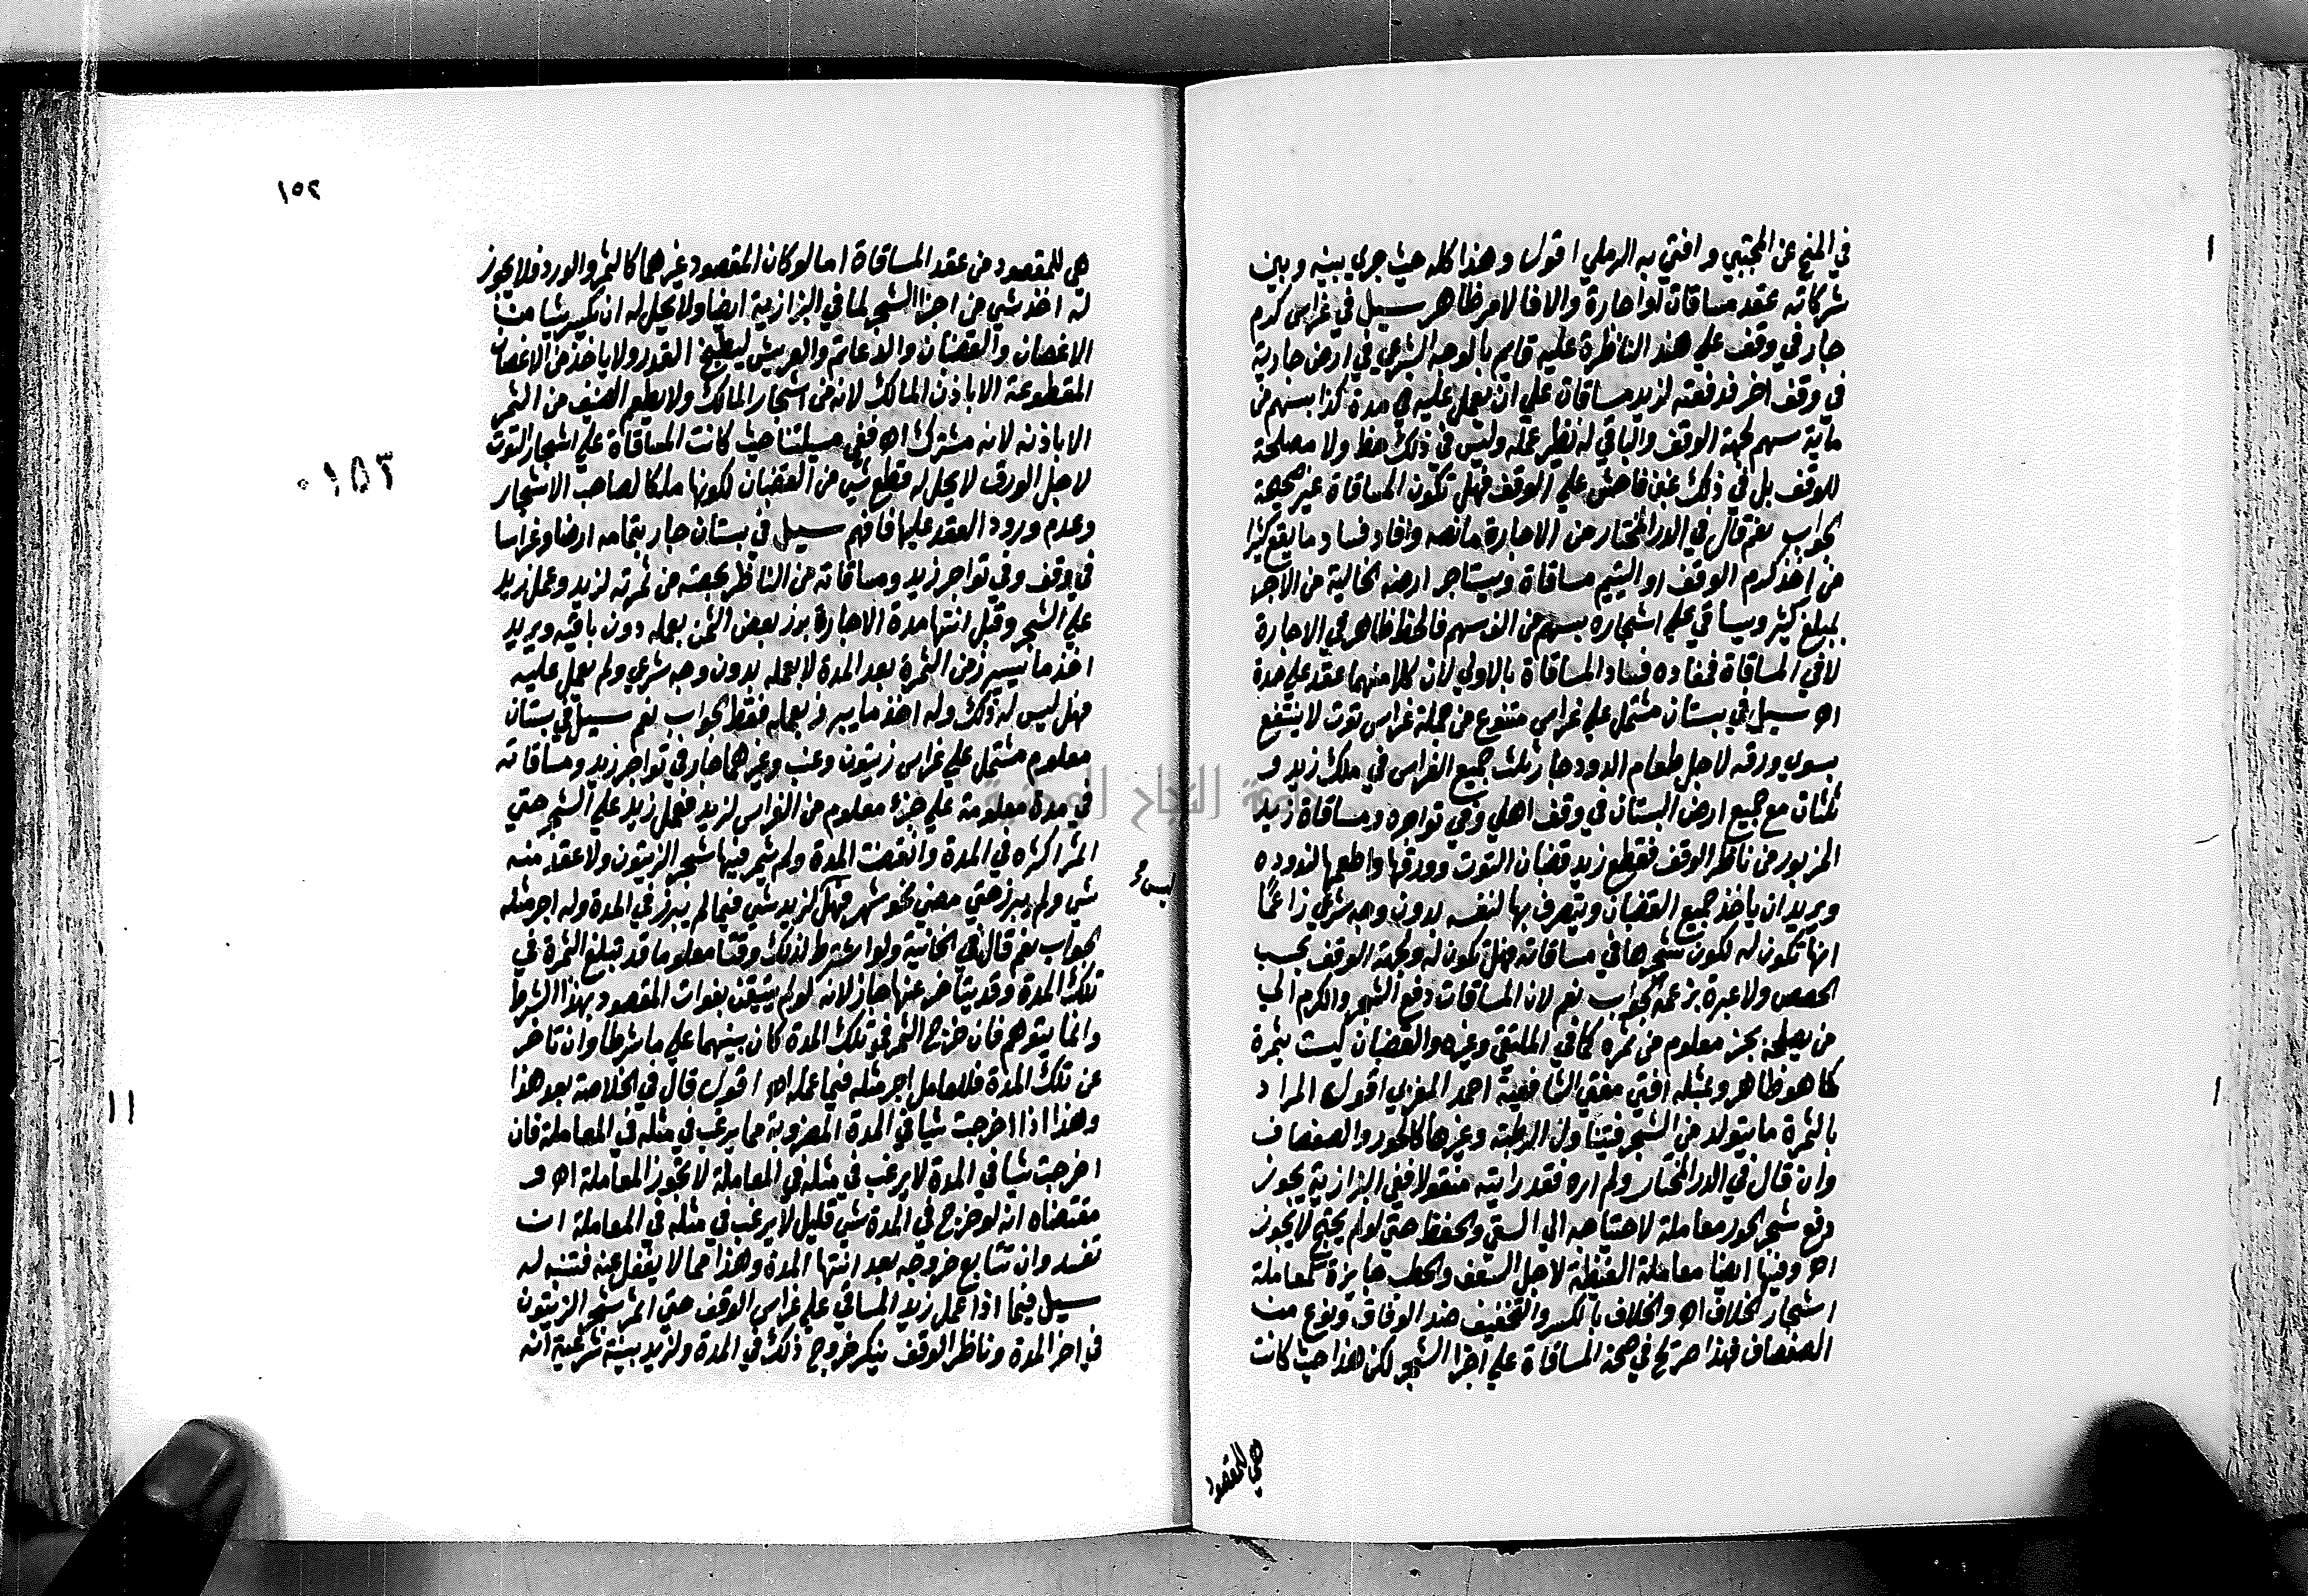 في المنح عن المجتبي وافتي به الرملي اقول وهذا كله حيث جري بينه وبين
شركائه عقد مساقاة او اجارة والا فالامر ظاهر سيل في غراس كرم
جار في وقف علي هند الناظرة عليه قايم بالوجه الشرعي في ارض جارية
في وقف اخر فدفعته لزيد مساقاة علي ان يعمل عليه في مدة كذا بسهم من
ماية سهم لجهة الوقف والباقي له نظير عمله وليس في ذلك حظ ولا مصلحة
للوقف بل في ذلك غبن فاحش علي الوقف فهل تكون المساقاة غير صحيحة
الجواب نعم قال في الدر المختار من الاجارة ما نصه وافاد فساد ما يقع كثيرا
من اخذ كرم الوقف او اليتيم مساقاة ويستاجر ارضه الخالية من الاجر
بمبلغ كثير ويساقي علي اشجاره بسهم من الف سهم فالحظ ظاهر في الاجارة
لا في المساقاة فمفاده فساد المساقاة بالاولي لان كلا منهما عقد علي حدة
اه سيل في بستان مشتمل علي غراس متنوع من جملة غراس توت لا ينتفع
بسوي ورقه لاجل طعام الدود جار ثلث جميع الغراس في ملك زيد و
ثلثان مع جميع ارض البستان في وقف اهلي وفي تواجره ومساقاة زيد
المزبور من ناظر الوقف فقطع زيد قضبان التوت وورقها واطعمها لدوده
ويريد ان ياخذ جميع القضبان ويتصرف بها لنفسه بدون وجه شرعي زاعما
انها تكون له لكون شجرها في مساقاته فهل تكون له ولجهة الوقف بحسب
الحصص ولا عبرة بزعمه الجواب نعم لان المساقات دفع الشجر والكرم الي
من يصلحه بجز معلوم من ثمره كما في الملتقي وغيره والقضبان ليست بثمرة
كما هو ظاهر وبمثله افتي مفتي الشافعية احمد الغزي اقول المراد
بالثمرة ما يتولد من الشجر فيتناول الرطبة وغيرها كالحور والصفصاف
وان قال في الدر المختار ولم اره فقد رايته منقولا ففي البزازية يجوز
دفع شجر الحور معاملة لاحتياجه الي السقي والحفظ حتي لو لم يحتج لا يجوز
اه وفيها ايضا معاملة الغيظة لاجل السعف والحطب جايزة كمعاملة
اشجار الخلاف اه والخلاف بالكسر والتخفيف ضد الوفاق ونوع من
الصفصاف فهذا صريح في صحة المساقاة علي اجزا الشجر لكن هذا حيث كانت
هي المقصود
١٥٢
هي المقصود من عقد المساقاة اما لو كان المقصود غيرهما كالثمر والورد فلا يجوز
له اخذ شي من اجزا الشجر لما في البزازية ايضا ولا يحل له ان يكسر شيا من
الاغصان والقضبان والدعائم والعريش ليطبخ القدر ولا ياخذ من الاغصان
المقطوعة الا باذن المالك لانه من اشجار المالك ولا يطعم الضيف من الثمر
الا باذنه لانه مشترك اه ففي مسيلتنا حيث كانت المساقاة علي اشجار التوت
١٥٢
لاجل الورق لا يحل له قطع شي من القضبان لكونها ملكا لصاحب الاشجار
وعدم ورود العقد عليها فافهم سيل في بستان جار بتمامه ارضا وغراسا
في وقف وفي تواجر زيد ومساقاته من الناظر بحصة من ثمرته لزيد وعمل زيد
علي الشجر وقبل انتها مدة الاجارة برز بعض الثمن بعمله دون باقيه ويريد
اخذ ما يبرز من الثمرة بعد المدة لا بعمله بدون وجه شرعي ولم يعمل عليه
فهل ليس له ذلك وله اخذ ما يبرز بعمله فقط الجواب نعم سيل في بستان
معلوم مشتمل علي غراس زيتون وعنب وغيرهما جار في تواجر زيد ومساقاته
في مدة معلومة علي جزء معلوم من الغراس لزيد فعمل زيد علي الشجر حتي
اثمر اكثره في المدة وانقضت المدة ولم يثمر فيها شجر الزيتون ولا عقد منه
ليس
شي ولم يبرز حتي مضي نحو شهر فهل لزيد شي فيما لم يبرز في المدة وله اجر مثله
الجواب نعم قال في الخانية ولو اشترط لذلك وقتا معلوما قد تبلغ الثمرة في
تلك المدة وقد يتاخر عنها جاز لانه لو لم يتيقن بفوات المقصود بهذا الشرط
وانما يتوهم فان خرج الثمر في تلك المدة كان بينهما علي ما شرطا وان تاخر
عن تلك المدة فللعامل اجر مثله فيما عمله اه اقول قال في الخلاصة بعد هذا
وهذا اذا اخرجت شيا في المدة المضروبة مما يرغب في مثله في المعاملة فان
اخرجت شيا في المدة لا يرغب في مثله في المعاملة لا تجوز المعاملة اه و
مقتضاه انه لو خرج في المدة شي قليل لا يرغب في مثله في المعاملة ان
تفسد وان تتابع خروجه بعد انتها المدة وهذا مما لا يغفل عنه فتنبه له
سيل فيما اذا عمل زيد المساقي علي غراس الوقف حتي اثمر شجر الزيتون
في اخر المدة وناظر الوقف ينكر خروج ذلك في المدة ولزيد بينة شرعية انه
جامعة النجاح الوطنية